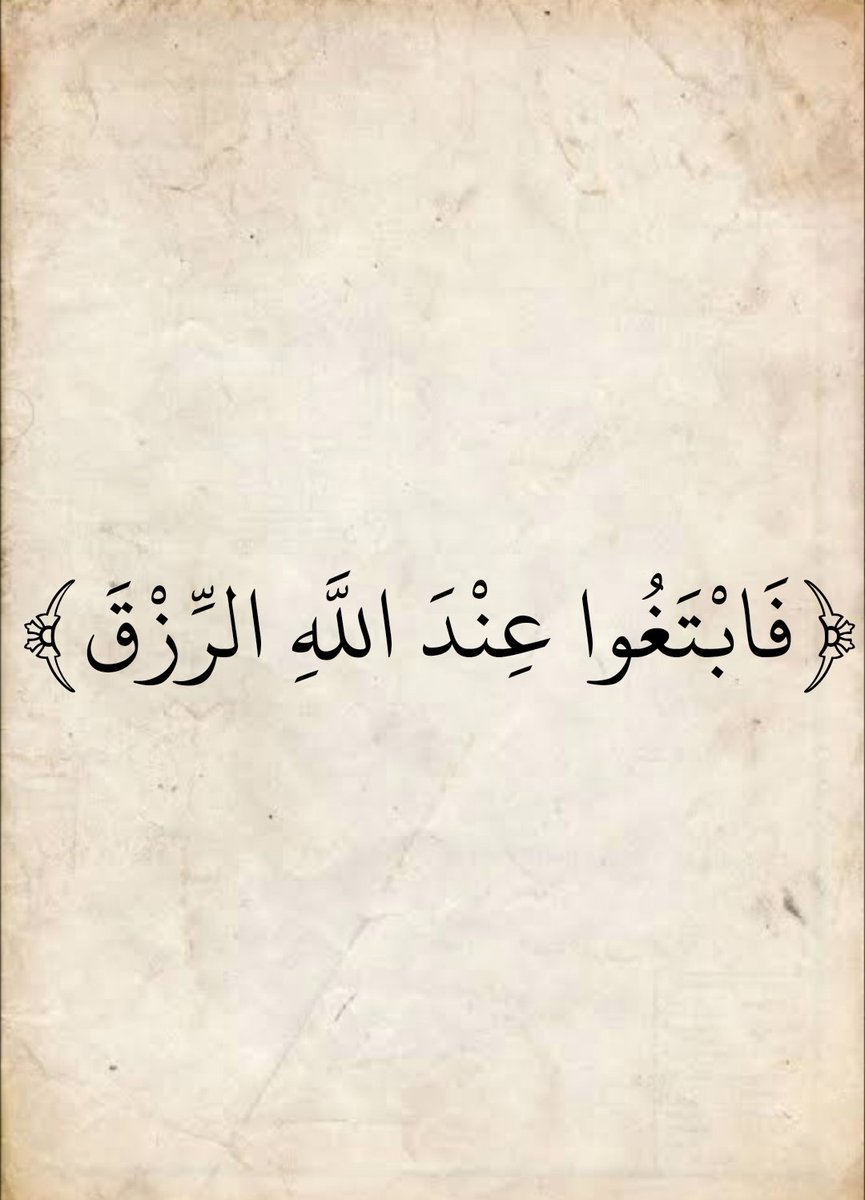 ﴿فَابْتَغُوا عِنْدَ اللَّهِ الرِّزْقَ﴾